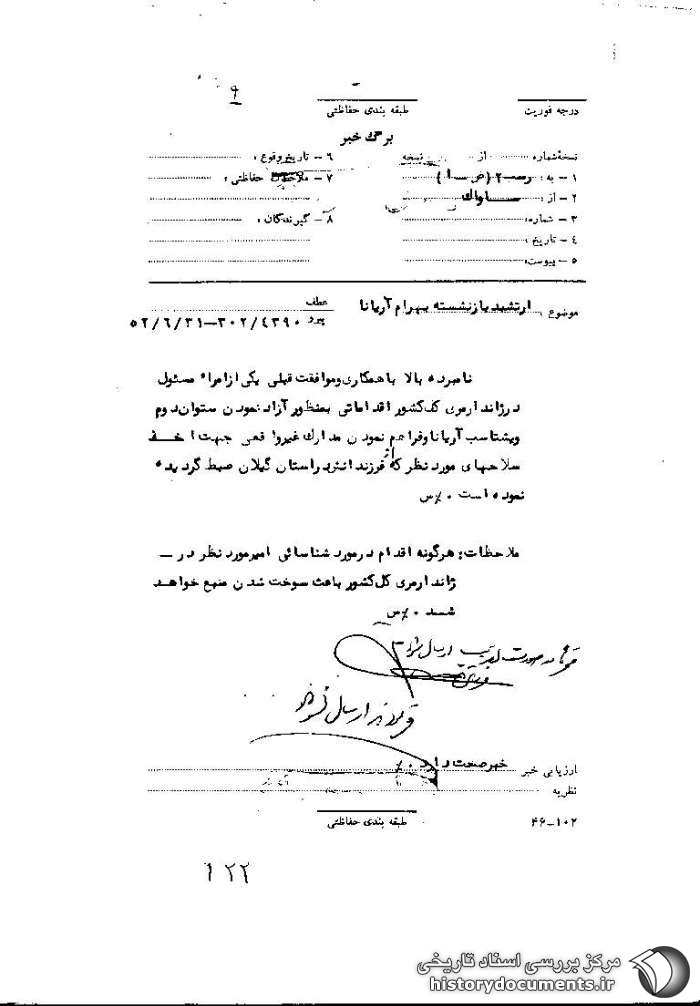 ۹
درجه فوریت
طبقه بندی حفاظتی
برگ خبر
نسخه شماره از نسخه
۱ - به :
۲ - از : ساواک
۳ - شماره :
۴ - تاریخ :
۵ - پیوست :
۶ - تاریخ وقوع :
۷ - ملاحظات حفاظتی :
۸ - گیرندگان :
موضوع ارتشبد بازنشسته بهرام آریانا
عطف
پیرو ۳۰۲/۴۲۹۰-۵۲/۶/۳۱
نامبرده بالا با همکاری و موافقت قبلی یکی از امراء مسئول
در ژاندارمری کل کشور اقداماتی بمنظور آزاد نمودن ستوان دوم
ویشتاسب آریانا و فراهم نمودن مدارک غیرواقعی جهت اخذ
سلاحهای مورد نظر که از فرزندانش در استان گیلان ضبط گردیده
نموده است ٠٪ س
ملاحظات: هرگونه اقدام در مورد شناسائی امیر مورد نظر در -
ژاندارمری کل کشور باعث سوخت شدن منبع خواهد
شد ٠٪ س
ارسال
ارسال نشود
ارزیابی خبر خبر صحت دارد ٠٪
نظریه
طبقه بندی حفاظتی
۴۶-۱۰۲
۱۲۲
مرکز بررسی اسناد تاریخی
historydocuments.ir